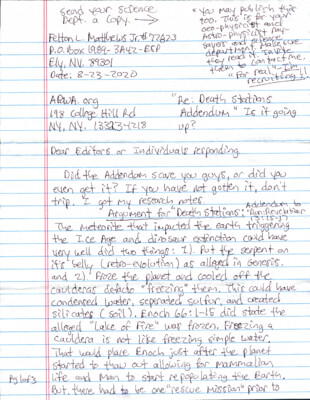 Send your science
Dept. a Copy. →
"You may publish this
too. This is for your
geo-physicist and
Astro-physicist
and science
department. Make sure
they read it. Invite
them to contact me.
"For real." I'm
recruiting!!
Felton L. Matthews Jr. # 77A23
P.O. Box 1989- 3A42-ESP
Ely, NV. 89301
Date: 8-23-2020
APWA.org
198 College Hill Rd
NY, NY. 13323-1218
"Re: Death Stations
Addendum" Is it going
up?
Dear Editors or Individuals responding.
Did the Addendum scare you guys, or did you
even get it? If you have not gotten it, don't
trip. I got my research notes.
Argument for "Death Stations: Addendum to
The meteorite that impacted the earth triggering
the Ice Age and dinosaur extinction could have
very well did two things: 1). Put the serpent on
it's belly (retro-evolution) as alleged in Genesis.
and 2) Froze the planet and cooled off the
caulderas defacto "freezing" them. This could have
condensed water, seperated sulfur, and created
silicates (soil). Enoch 66:1-15 did state the
alleged "Lake of Fire" was frozen. Freezing a
cauldera is not like freezing simple water.
That would place Enoch just after the planet
started to thaw out allowing for Mammalian
life and Man to start repopulating the Earth.
But, there had to be one "rescue mission" prior to
Pg 1 of 3